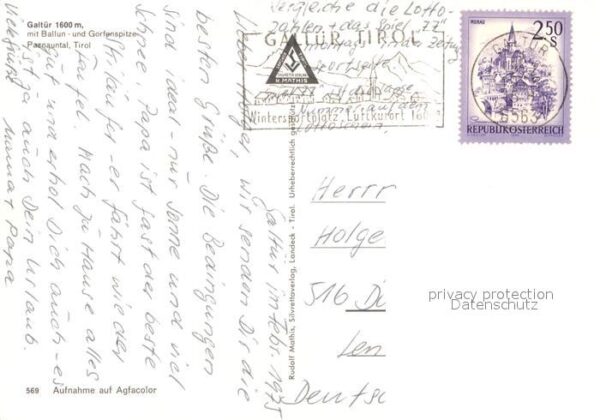 Galtür 1600 m,
mit Ballun - und Gorfenspitze
Paznauntal, Tirol
Vergleiche die Lotto-
zahlen + das Spiel "77"
montags in der Zeitung
Sportseite
"Spiel 77" ist die lange
Nummer auf dem
Lottoschein.
GALTÜR TIROL
R. MATHIS
Wintersportplatz, Luftkurort
MURAU
2.50
S
REPUBLIK ÖSTERREICH
GALTÜR
6563
Galtür im Febr. 1975
Lieber Holger, wir senden Dir die
besten Grüße. Die Bedingungen
sind ideal - nur Sonne und viel
Schnee. Papa ist fast der beste
Skiläufer - er fährt wie der
Teufel. Mach zu Hause alles
gut und erhol Dich auch - es
ist ja auch Dein Urlaub.
Mama + Papa
Herrn
Holge
516 Dü
Len
Deutsc
Rudolf Mathis, Silvrettaverlag, Landeck - Tirol. Urheberrechtlich
privacy protection
Datenschutz
569 Aufnahme auf Agfacolor